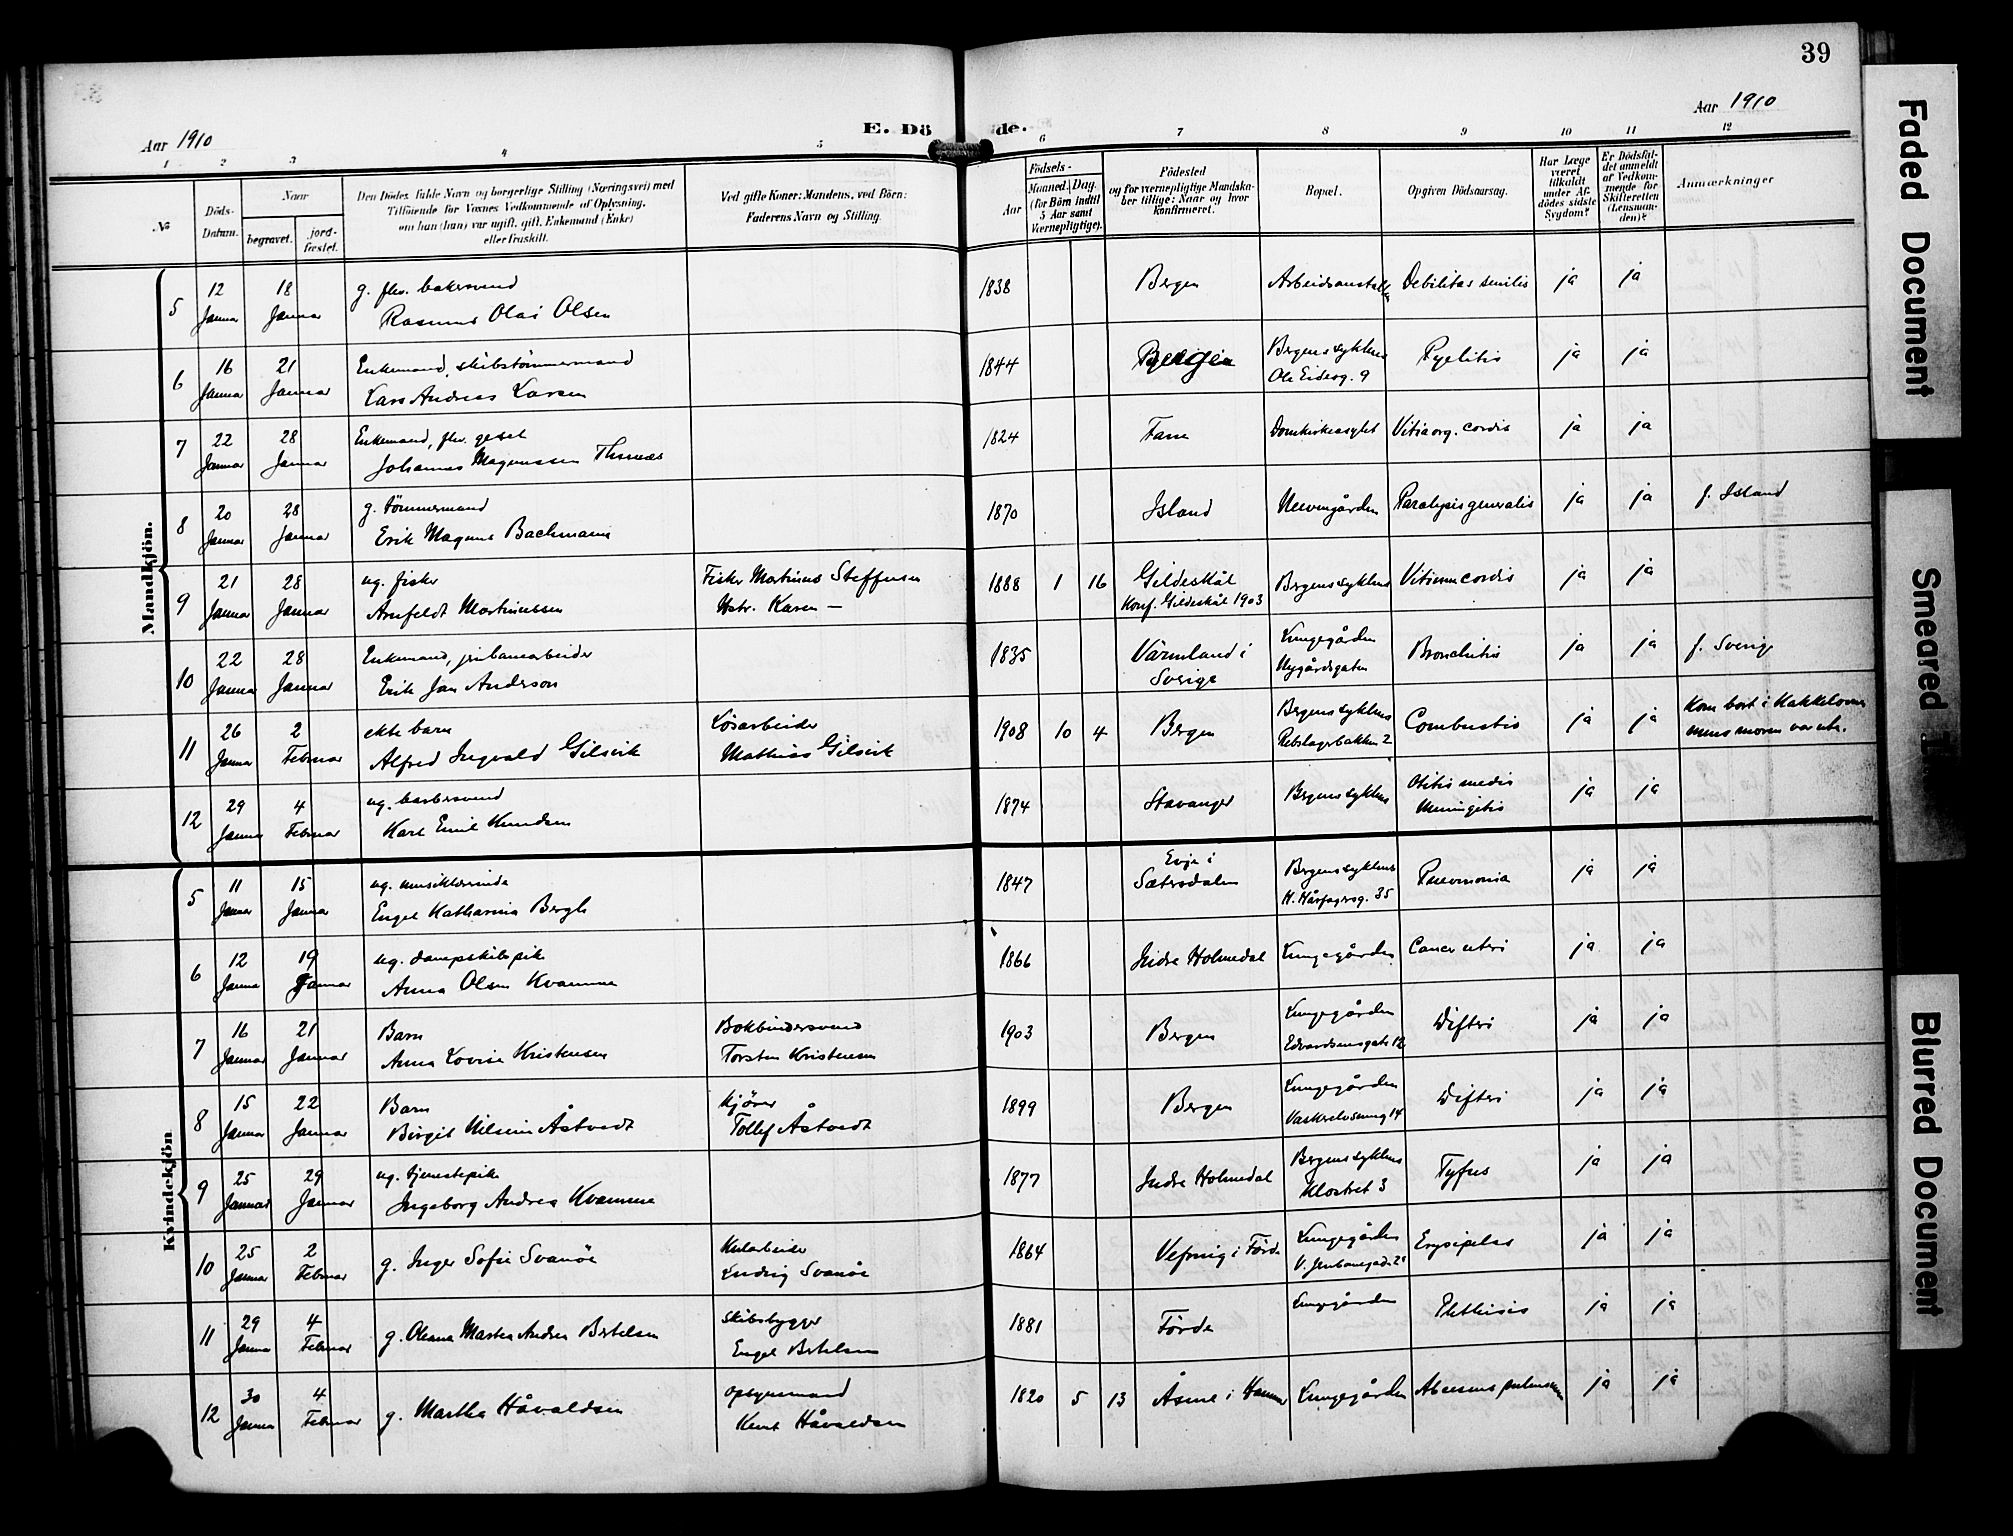 39
Aar 1910
E. Dö de.
Aar 1910
1 2 3 4 5 6 7 8 9 10 11 12
№
Döds-
Datum.
Naar
begravet.
jord-
fæstet.
Den Dödes fulde Navn og borgerlige Stilling (Næringsvei) med
Tilföiende for Voxnes Vedkommende af Oplysning,
om han (hun) var ugift, gift, Enkemand (Enke)
eller fraskilt.
Ved gifte Koner: Mandens, ved Börn:
Faderens Navn og Stilling.
Aar
Födsels-
Maaned. Dag.
(for Börn indtil
5 Aar samt
Værnepligtige).
Födested
og for værnepligtige Mandska-
ber tillige: Naar og hvor
konfirmeret.
Bopæl.
Opgiven Dödsaarsag.
Har Læge
været
tilkaldt
under Af-
dödes sidste
Sygdom?
Er Dödsfal-
det anmeldt
af Vedkom-
mende for
Skifteretten
(Lensman-
den)?
Anmærkninger
Mandkjön.
5 12 Januar 18 Januar g. flv. bakersvend
Rasmus Olai Olsen 1838 Bergen Arbeidsanstalten Debilitas senilis ja ja
6 16 Januar 21 Januar Enkemand, skibstömmermand
Lars Andreas Larsen 1844 Bergen Bergens sykehus
Ole Eidesg. 9 Pyelitis ja ja
7 22 Januar 28 Januar Enkemand, flv. gesel
Johannes Magnussen 1824 Fane Domkirkeasylet Vitia org. cordis ja ja
8 20 Januar 28 Januar g. tömmermand
Erik Magnus Bachmann 1870 Island Neevengården Paralysis generalis ja ja f. Island
9 21 Januar 28 Januar ug. fisker
Arnfeldt Martinussen Fisker Martinus Steffensen
Hstr. Karen — 1888 1 16 Gildeskål
Konf. Gildeskål 1903 Bergens sykehus Vitium cordis ja ja
10 22 Januar 28 Januar Enkemand, jernbanearbeider
Erik Jan Anderson 1835 Värmland i
Sverige Lungegården
Nygårdsgaten Bronchitis ja ja f. Sverige
11 26 Januar 2 Februar ekte barn
Alfred Ingvald Gilsvik Løsarbeider
Mathias Gilsvik 1908 10 4 Bergen Bergens sykehus
Rebslagerbakken 2 Combustio ja ja Kom bort i Kakkelovnen
mens moren var ute.
12 29 Januar 4 Februar ug. barbersvend
Karl Emil Knudsen 1874 Stavanger Bergens sykehus Otitis media
Meningitis ja ja
Kvindekjön
5 11 Januar 15 Januar ug. musiklærerinde
Engel Katharina Bergh 1847 Evje i
Sætersdalen Bergens sykehus
H. Hårfagersg. 35 Pneumonia ja ja
6 12 Januar 19 Januar ug. dampskibspike
Anna Olsen Kvamme 1866 Indre Holmedal Lungegården Cancer uteri ja ja
7 16 Januar 21 Januar Barn
Anna Lovise Kristensen Bokbindersvend
Torsten Kristensen 1903 Bergen Lungegården
Edvardsensgate 12 Difteri ja ja
8 15 Januar 22 Januar Barn
Birgit Nilsine Åstvedt Kjører
Tollef Åstvedt 1899 Bergen Lungegården
Vaskerelvsmug 14 Difteri ja ja
9 25 Januar 29 Januar ug. tjenestepike
Ingeborg Andrea Kvamme 1877 Indre Holmedal Bergens sykehus
Klostret 3 Tyfus ja ja
10 25 Januar 2 Februar g. Inger Sofie Svanöe Kularbeider
Ludvig Svanöe 1864 Vefring i Förde Lungegården
V. Jernbanegade Erysipelas ja ja
11 29 Januar 4 Februar g. Oleana Marthea Andrea Bertelsen Skibsbygger
Engel Bertelsen 1881 Förde Lungegården Phthisis ja ja
12 30 Januar 4 Februar g. Martha Håvaldsen opsynsmand
Knut Håvaldsen 1820 5 13 Åsene i Hammer Lungegården Abscessus pulmonum ja ja
Faded Document
Smeared
Blurred Document